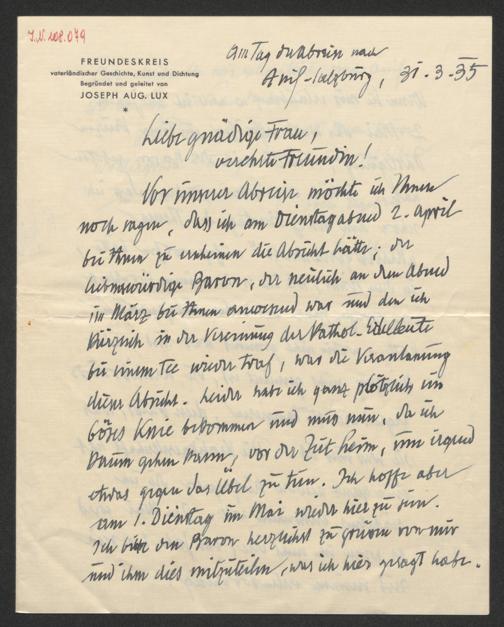 J.N. 202.079
FREUNDESKREIS
vaterländischer Geschichte, Kunst und Dichtung
Begründet und geleitet von
JOSEPH AUG. LUX
*
Am Tag der Abreise nach
Anif-Salzburg, 31-3-35
Liebe gnädige Frau,
verehrte Freundin!
Vor unserer Abreise möchte ich Ihnen
noch sagen, dass ich am Dienstagabend 2. April
bei Ihnen zu erscheinen die Absicht hätte; der
liebenswürdige Baron, der neulich an dem Abend
im März bei Ihnen anwesend war und den ich
kürzlich in der Vereinung der Kathol. Edelleute
bei einem Tee wieder traf, war die Veranlassung
dieser Absicht. Leider habe ich ganz plötzlich ein
böses Knie bekommen und muss nun, da ich
kaum gehen kann, vor der Zeit heim, um irgend
etwas gegen das Übel zu tun. Ich hoffe aber
am 1. Dienstag im Mai wieder hier zu sein.
Ich bitte den Baron herzlichst zu grüssen von mir
und ihm dies mitzuteilen, was ich hier gesagt habe.